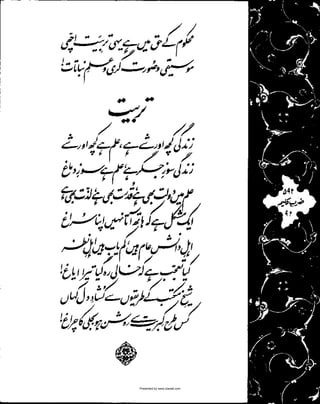 محکوم کے حق میں ہے یہی تربیت اچھی
موسیقی و صورت گری و علمِ نباتات!
تربیت
زندگی کچھ اور شے ہے، علم ہے کچھ اور شے
زندگی سوزِ جگر ہے، علم ہے سوزِ دماغ
علم میں دولت بھی ہے، قدرت بھی ہے، لذت بھی ہے
ایک مشکل ہے کہ ہاتھ آتا نہیں اپنا سراغ
اہلِ دانش عام ہیں، کم یاب ہیں اہلِ نظر
کیا تعجب ہے کہ خالی رہ گیا تیرا ایاغ!
شیخِ مکتب کے طریقوں سے کشادِ دل کہاں
کس طرح کبریت سے روشن ہو بجلی کا چراغ!
۵۹۲
ضربِ کلیم
۹۲